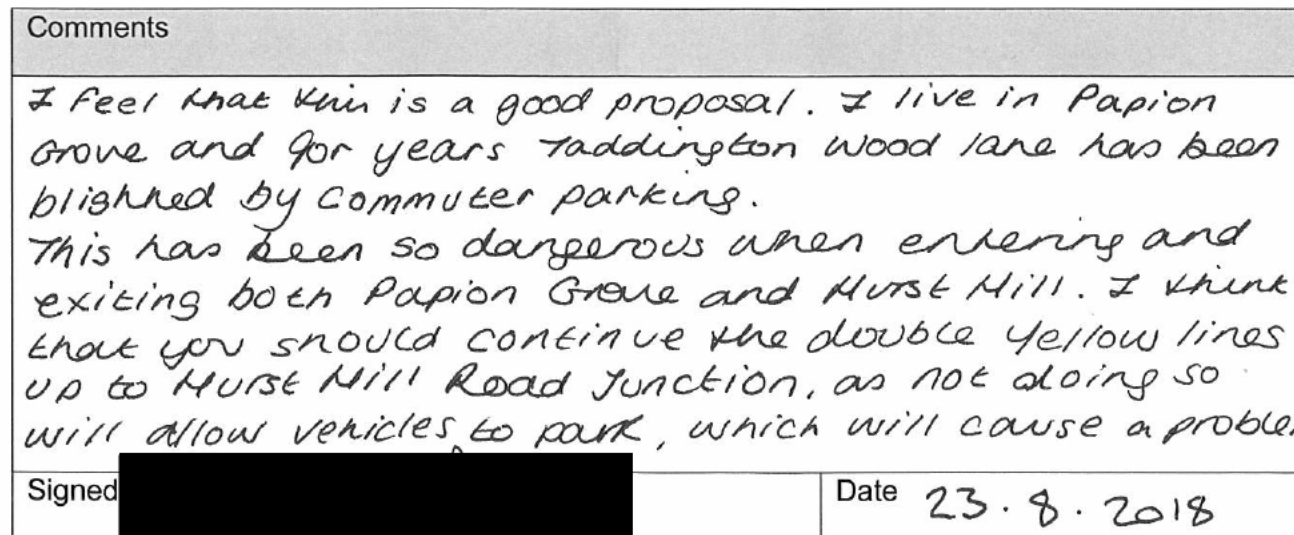 Comments
I feel that this is a good proposal. I live in Papion
Grove and for years Taddington Wood lane has been
blighted by commuter parking.
This has been so dangerous when entering and
exiting both Papion Grove and Hurst Hill. I think
that you should continue the double yellow lines
up to Hurst Hill Road Junction, as not doing so
will allow vehicles to park, which will cause a proble
Signed
Date 23.8.2018